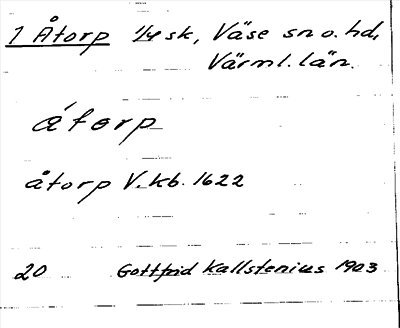 1 Åtorp 1/4 sk, Väse sn o. hd,
Värml. län.
åtorp
åtorp V. kb. 1622
20 Gottfrid Kallstenius 1903